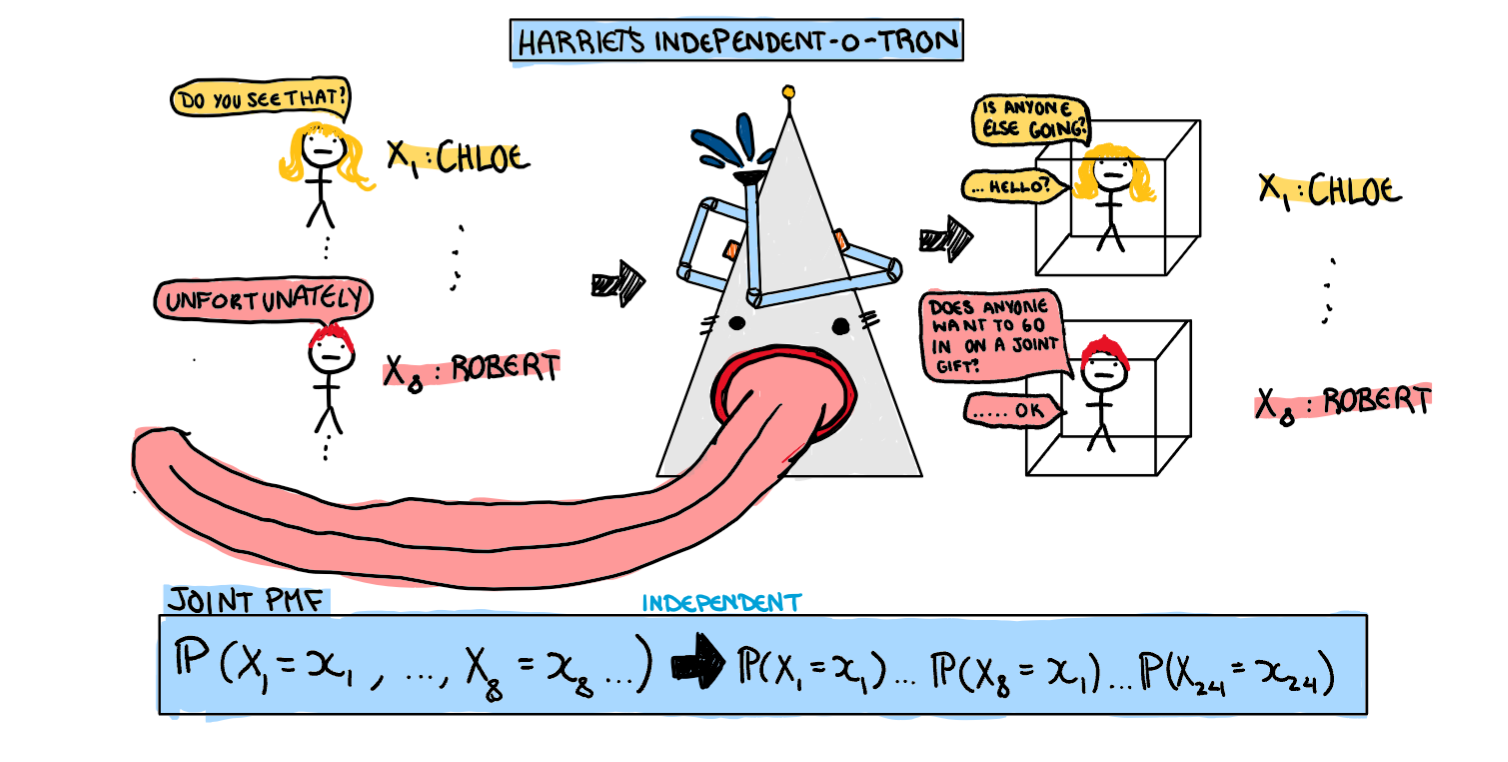 HARRIET'S INDEPENDENT-O-TRON
DO YOU SEE THAT?
X₁ : CHLOE
UNFORTUNATELY
X₈ : ROBERT
IS ANYONE
ELSE GOING?
... HELLO?
X₁ : CHLOE
DOES ANYONE
WANT TO GO
IN ON A JOINT
GIFT?
..... OK
X₈ : ROBERT
JOINT PMF
INDEPENDENT
ℙ(X₁ = x₁, ..., X₈ = x₈ ...) ➡ ℙ(X₁ = x₁) ... ℙ(X₈ = x₁) ... ℙ(X₂₄ = x₂₄)